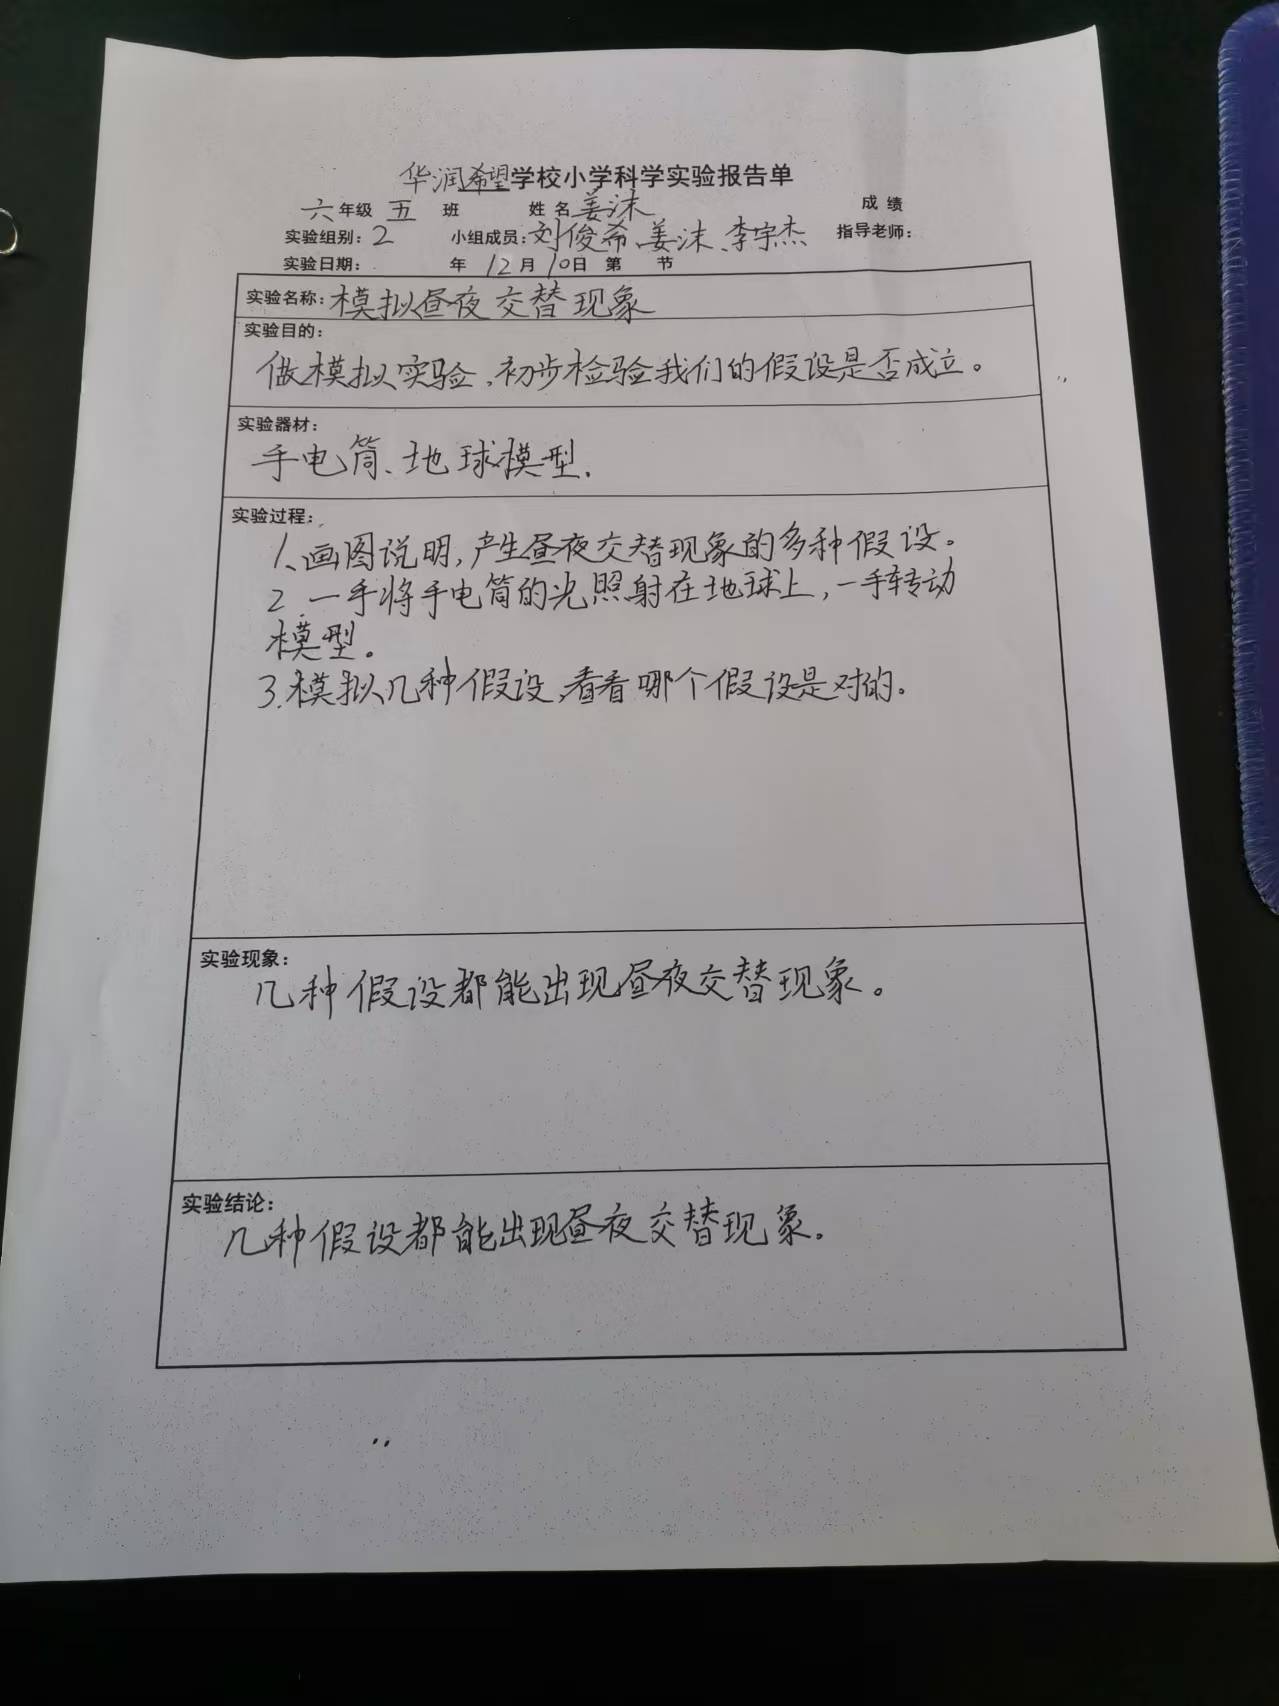 华润希望学校小学科学实验报告单
六年级 五 班 姓名 姜沫 成绩
实验组别：2 小组成员：刘俊希、姜沫、李宇杰 指导老师：
实验日期： 年 12月10日 第 节
实验名称：模拟昼夜交替现象
实验目的：
做模拟实验，初步检验我们的假设是否成立。
实验器材：
手电筒、地球模型.
实验过程：
1、画图说明，产生昼夜交替现象的多种假设。
2、一手将手电筒的光照射在地球上，一手转动
模型。
3.模拟几种假设，看看哪个假设是对的。
实验现象：
几种假设都能出现昼夜交替现象。
实验结论：
几种假设都能出现昼夜交替现象。